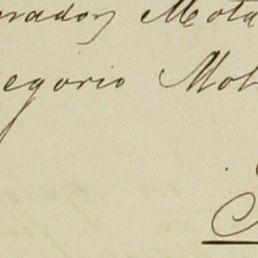 rador Mota
egorio Mot